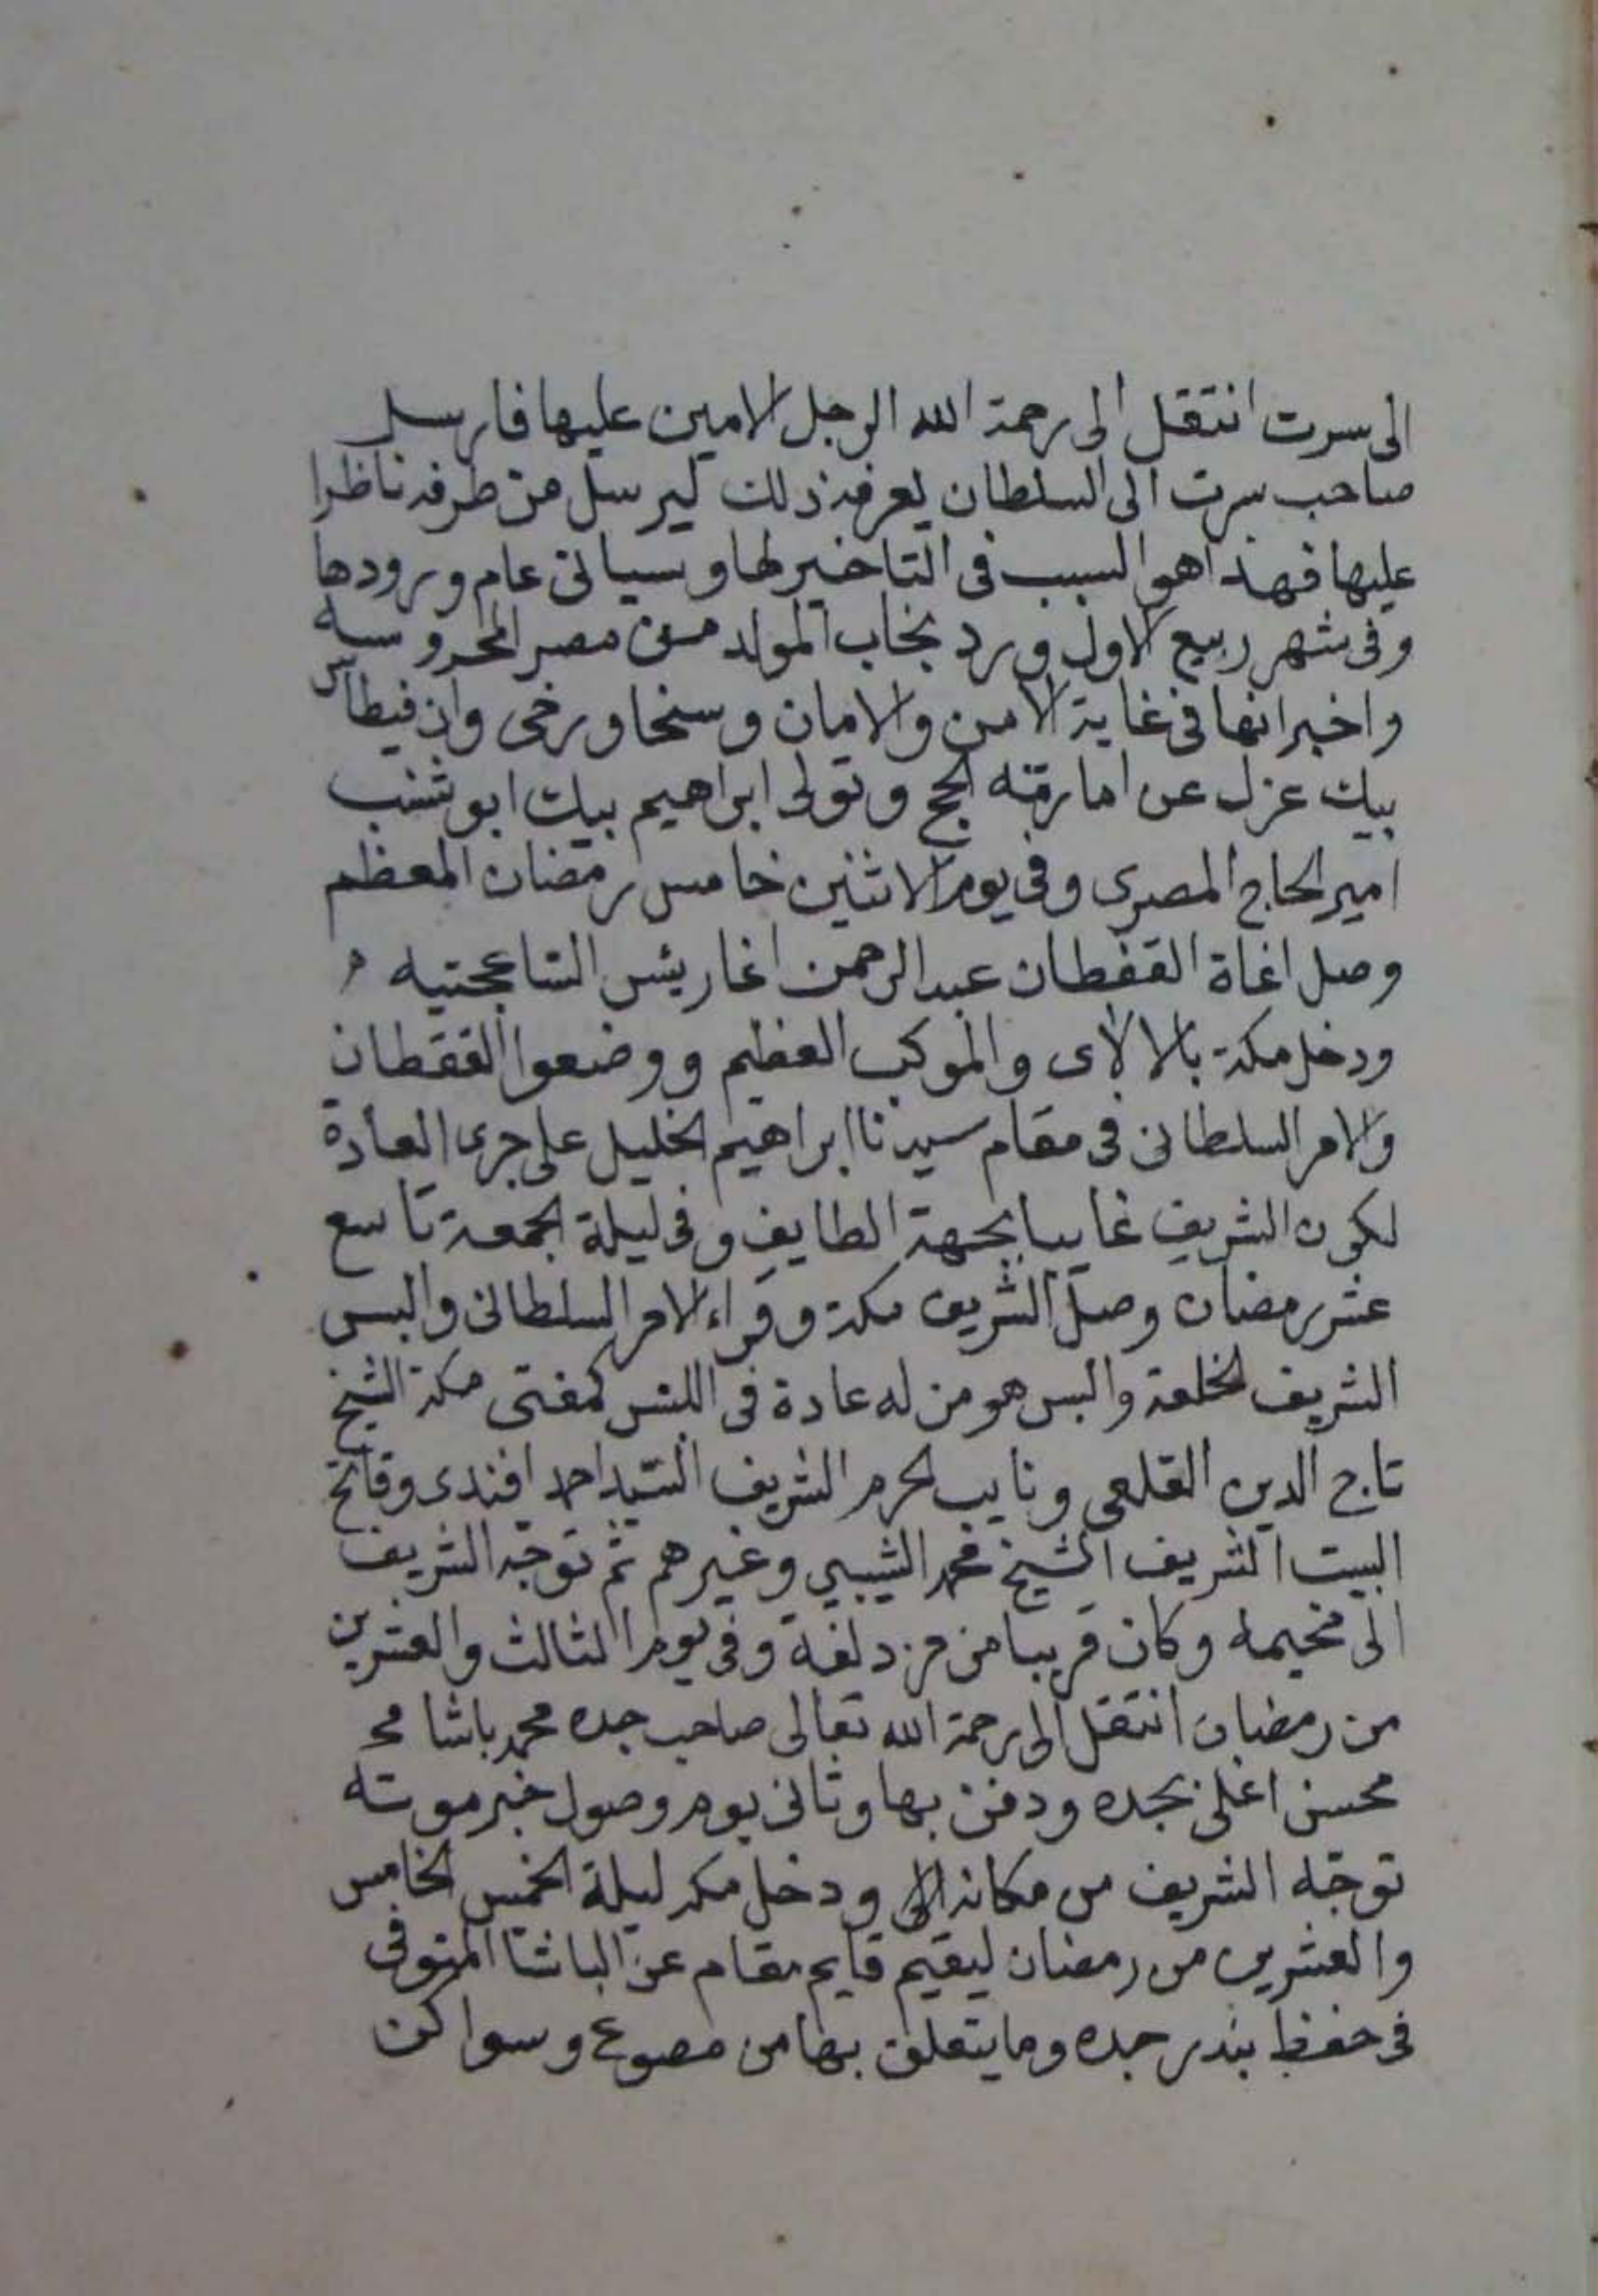 الى سرت انتقل الى رحمة الله الرجل الامين عليها فارسل
صاحب سرت الى السلطان يعرفه ذلك ليرسل من طرفه ناظرا
عليها فهذا هو السبب فى التاخير لها وسياتى عام ورودها
وفى شهر ربيع الاول ورد نجاب المولد من مصر المحروسه
واخبر انها فى غاية الامن والامان وسخا ورخى وان قيطاس
بيك عزل عن امارته الحج وتولى ابراهيم بيك ابو شنب
امير الحاج المصرى وفى يوم الاثنين خامس رمضان المعظم
وصل اغاة القفطان عبد الرحمن اغا ريئس الشاعجتيه
ودخل مكة بالالاى والموكب العظيم ووضعوا القفطان
والامر السلطانى فى مقام سيدنا ابراهيم الخليل على جرى العادة
لكون الشريف غايبا بجهة الطايف وفى ليلة الجمعة تاسع
عشر رمضان وصل الشريف مكة وقراء الامر السلطانى والبس
الشريف الخلعة والبس هو من له عادة فى اللبس كمفتى مكة الشيخ
تاج الدين القلعى ونايب الحرم الشريف السيد احمد افندى وفاتح
البيت الشريف الشيخ محمد الشيبي وغيرهم ثم توجه الشريف
الى مخيمه وكان قريبا من مزدلفة وفى يوم الثالث والعشرين
من رمضان انتقل الى رحمة الله تعالى صاحب جده محمد باشا مح
محسن اغلى بجده ودفن بها وثانى يوم وصول خبر موته
توجه الشريف من مكانه الى ودخل مكه ليلة الخميس الخامس
والعشرين من رمضان ليقيم قايم مقام عن الباشا المتوفى
فى حفظ بندر جده وما يتعلق بها من مصوع وسواكن